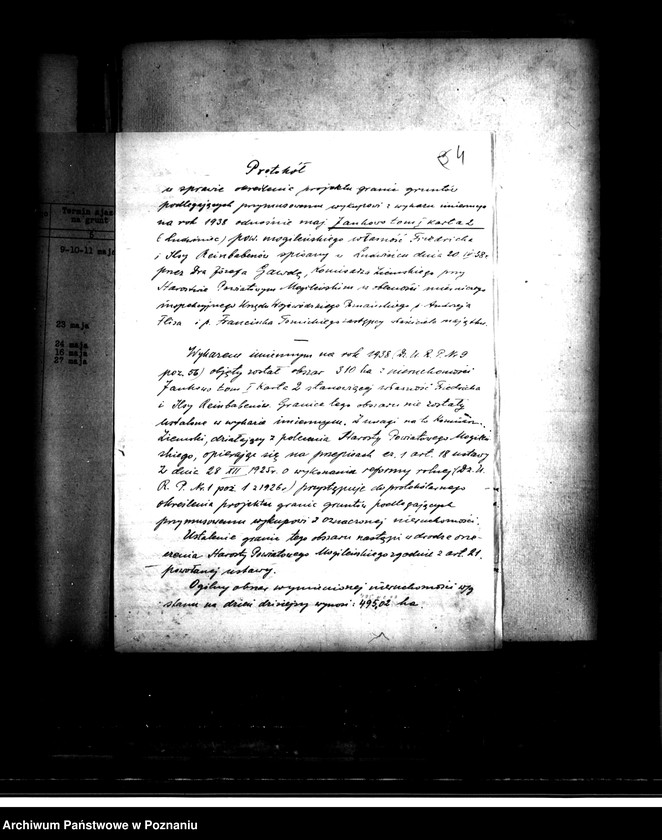 34
Protokół
w sprawie określenia projektu granic gruntów
podlegających przymusowemu wykupowi z wykazu imiennego
na rok 1938 odnośnie maj. Jankowo tom I karta 2
(Ludwiniec) pow. mogileńskiego własność Friedricha
i Ilsy Reinbabenów spisany w dnia 20 IV 38 r.
przez Dra Józefa Gawdę, Komisarza Ziemskiego przy
Starostwie Powiatowym Mogileńskim w obecności mierniczego
inspekcyjnego Urzędu Wojewódzkiego Poznańskiego p. Andrzeja
Flisa i p. Franciszka zastępcy właściciela majątku.
Wykazem imiennym na rok 1938 (Dz. U. R. P. Nr 9
poz. 56) objęty został obszar 310 ha z nieruchomości
Jankowo tom I karta 2 stanowiącej własność Friedricha
i Ilsy Reinbabenów. Granice tego obszaru nie zostały
ustalone w wykazie imiennym. Z uwagi na to Komisarz
Ziemski, działający z polecenia Starosty Powiatowego Mogileń-
skiego, opierając się na przepisach cz. 1 art. 18 ustawy
z dnia 28 XII 1925 r. o wykonaniu reformy rolnej (Dz. U.
R. P. Nr. 1 poz. 1 z 1926 r.) przystępuje do protokólarnego
określenia projektu granic gruntów podlegających
przymusowemu wykupowi z oznaczonej nieruchomości.
Ustalenie granic tego obszaru nastąpi w drodze orze-
czenia Starosty Powiatowego Mogileńskiego zgodnie z art. 21
powołanej ustawy.
Ogólny obszar wymienionej nieruchomości wg
stanu na dzień dzisiejszy wynosi: 495,02 ha.
Termin zjaz
na grunt
6
9-10-11 maja
23 maja
24 maja
16 maja
27 maja
Archiwum Państwowe w Poznaniu